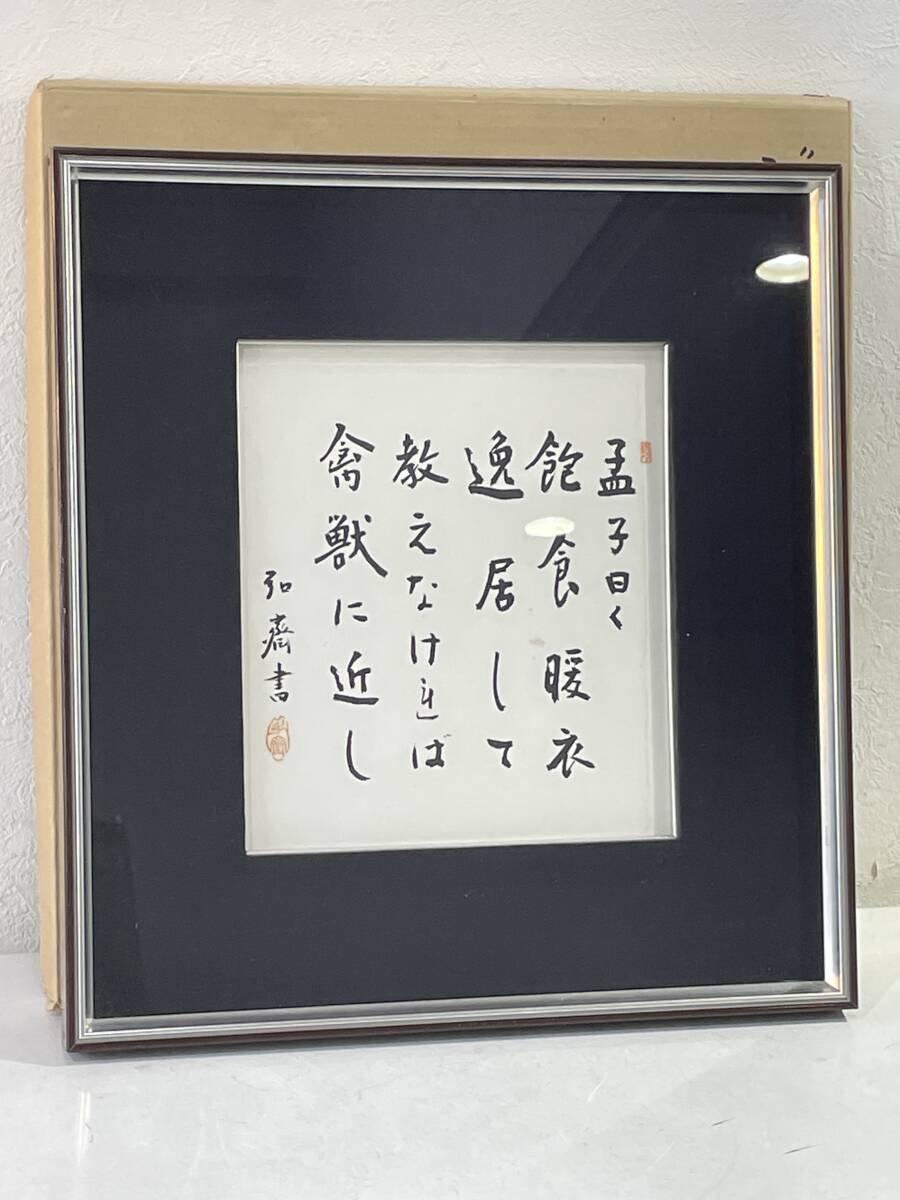 孟子曰く
飽食暖衣
逸居して
教えなければ
禽獣に近し
弘齋書